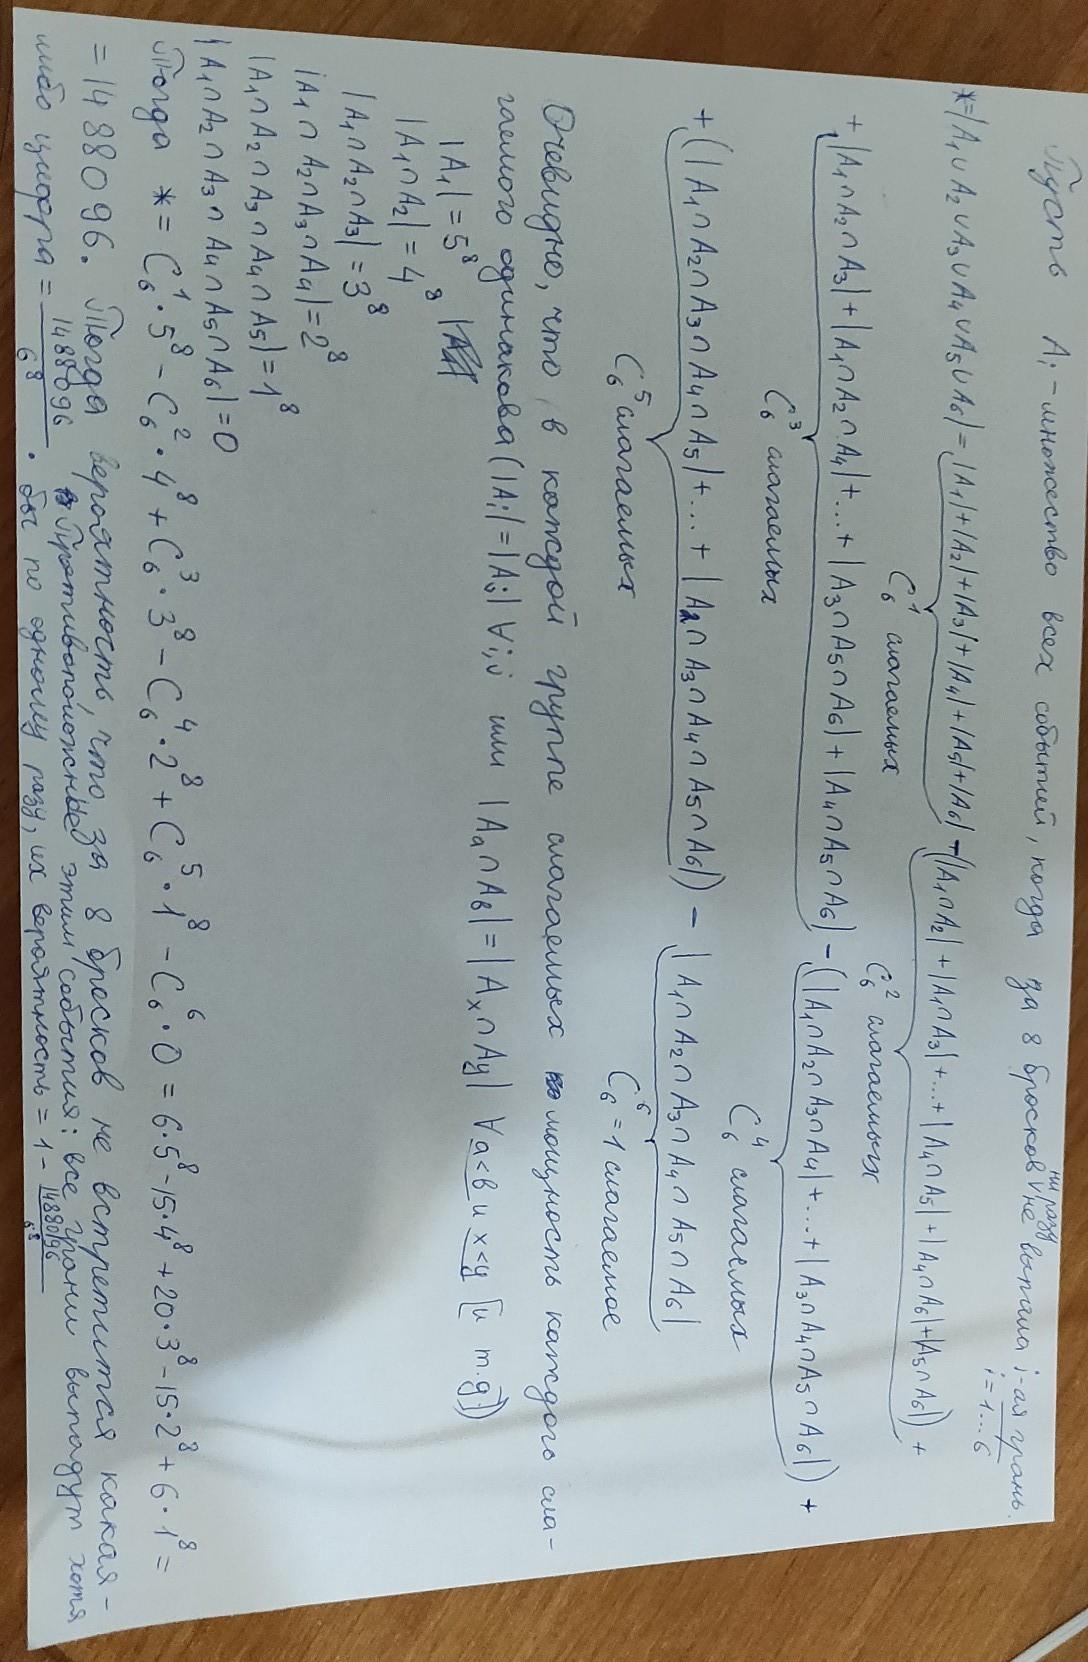 Пусть Ai – множество всех событий, когда за 8 бросков ни разу не выпала i-ая грань.
i=1...6
*=|A1∪A2∪A3∪A4∪A5∪A6| = |A1|+|A2|+|A3|+|A4|+|A5|+|A6| – (|A1∩A2|+|A1∩A3|+...+|A4∩A5|+|A4∩A6|+|A5∩A6|)+
C₆¹ слагаемых C₆² слагаемых
+|A1∩A2∩A3|+|A1∩A2∩A4|+...+|A3∩A5∩A6|+|A4∩A5∩A6| – (|A1∩A2∩A3∩A4|+...+|A3∩A4∩A5∩A6|)+
C₆³ слагаемых C₆⁴ слагаемых
+(|A1∩A2∩A3∩A4∩A5|+...+|A2∩A3∩A4∩A5∩A6|) – |A1∩A2∩A3∩A4∩A5∩A6|
C₆⁵ слагаемых C₆⁶=1 слагаемое
Очевидно, что в каждой группе слагаемых мощность каждого сла-
гаемого одинакова (|Ai|=|Aj| ∀i,j или |Aa∩Aв|=|Ax∩Ay| ∀a<в и x<y [и т.д.])
|A1|=5⁸
|A1∩A2|=4⁸
|A1∩A2∩A3|=3⁸
|A1∩A2∩A3∩A4|=2⁸
|A1∩A2∩A3∩A4∩A5|=1⁸
|A1∩A2∩A3∩A4∩A5∩A6|=0
Тогда *= C₆¹·5⁸ – C₆²·4⁸ + C₆³·3⁸ – C₆⁴·2⁸ + C₆⁵·1⁸ – C₆⁶·0 = 6·5⁸–15·4⁸+20·3⁸–15·2⁸+6·1⁸=
=1488096. Тогда вероятность, что за 8 бросков не встретится какая-
либо цифра = 1488096/6⁸. Противоположные этим события: все грани выпадут хотя
бы по одному разу, их вероятность = 1 – 1488096/6⁸